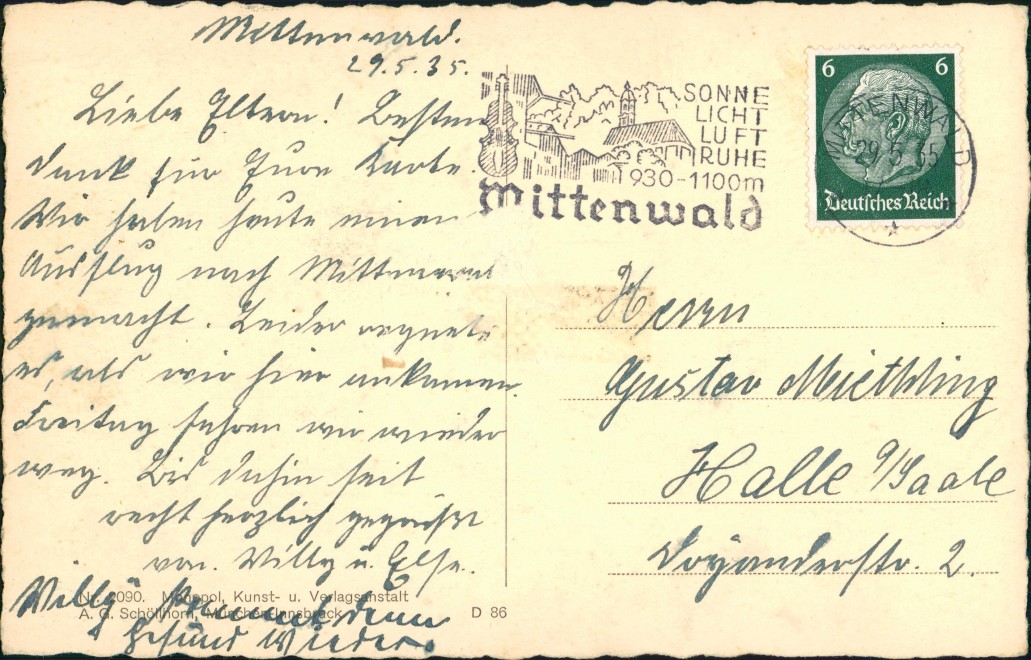 Mittenwald.
29.5.35.
Liebe Eltern! Besten
Dank für Eure Karte.
Wir haben heute einen
Ausflug nach Mittenwald
gemacht. Leider regnete
es, als wir hier ankamen.
Freitag fahren wir wieder
weg. Bis dahin seit
recht herzlich gegrüßt
von Willy u. Else.
Willy kommt denn
Gesund Wieder.
Nr. 2090. Monopol, Kunst- u. Verlagsanstalt
A. G. Schöllhorn, München-Innsbruck
D 86
SONNE
LICHT
LUFT
RUHE
930-1100m
Mittenwald
6 6
Deutsches Reich
MITTENWALD
29.5.35
Herrn
Gustav Miethling
Halle a/Saale
2.